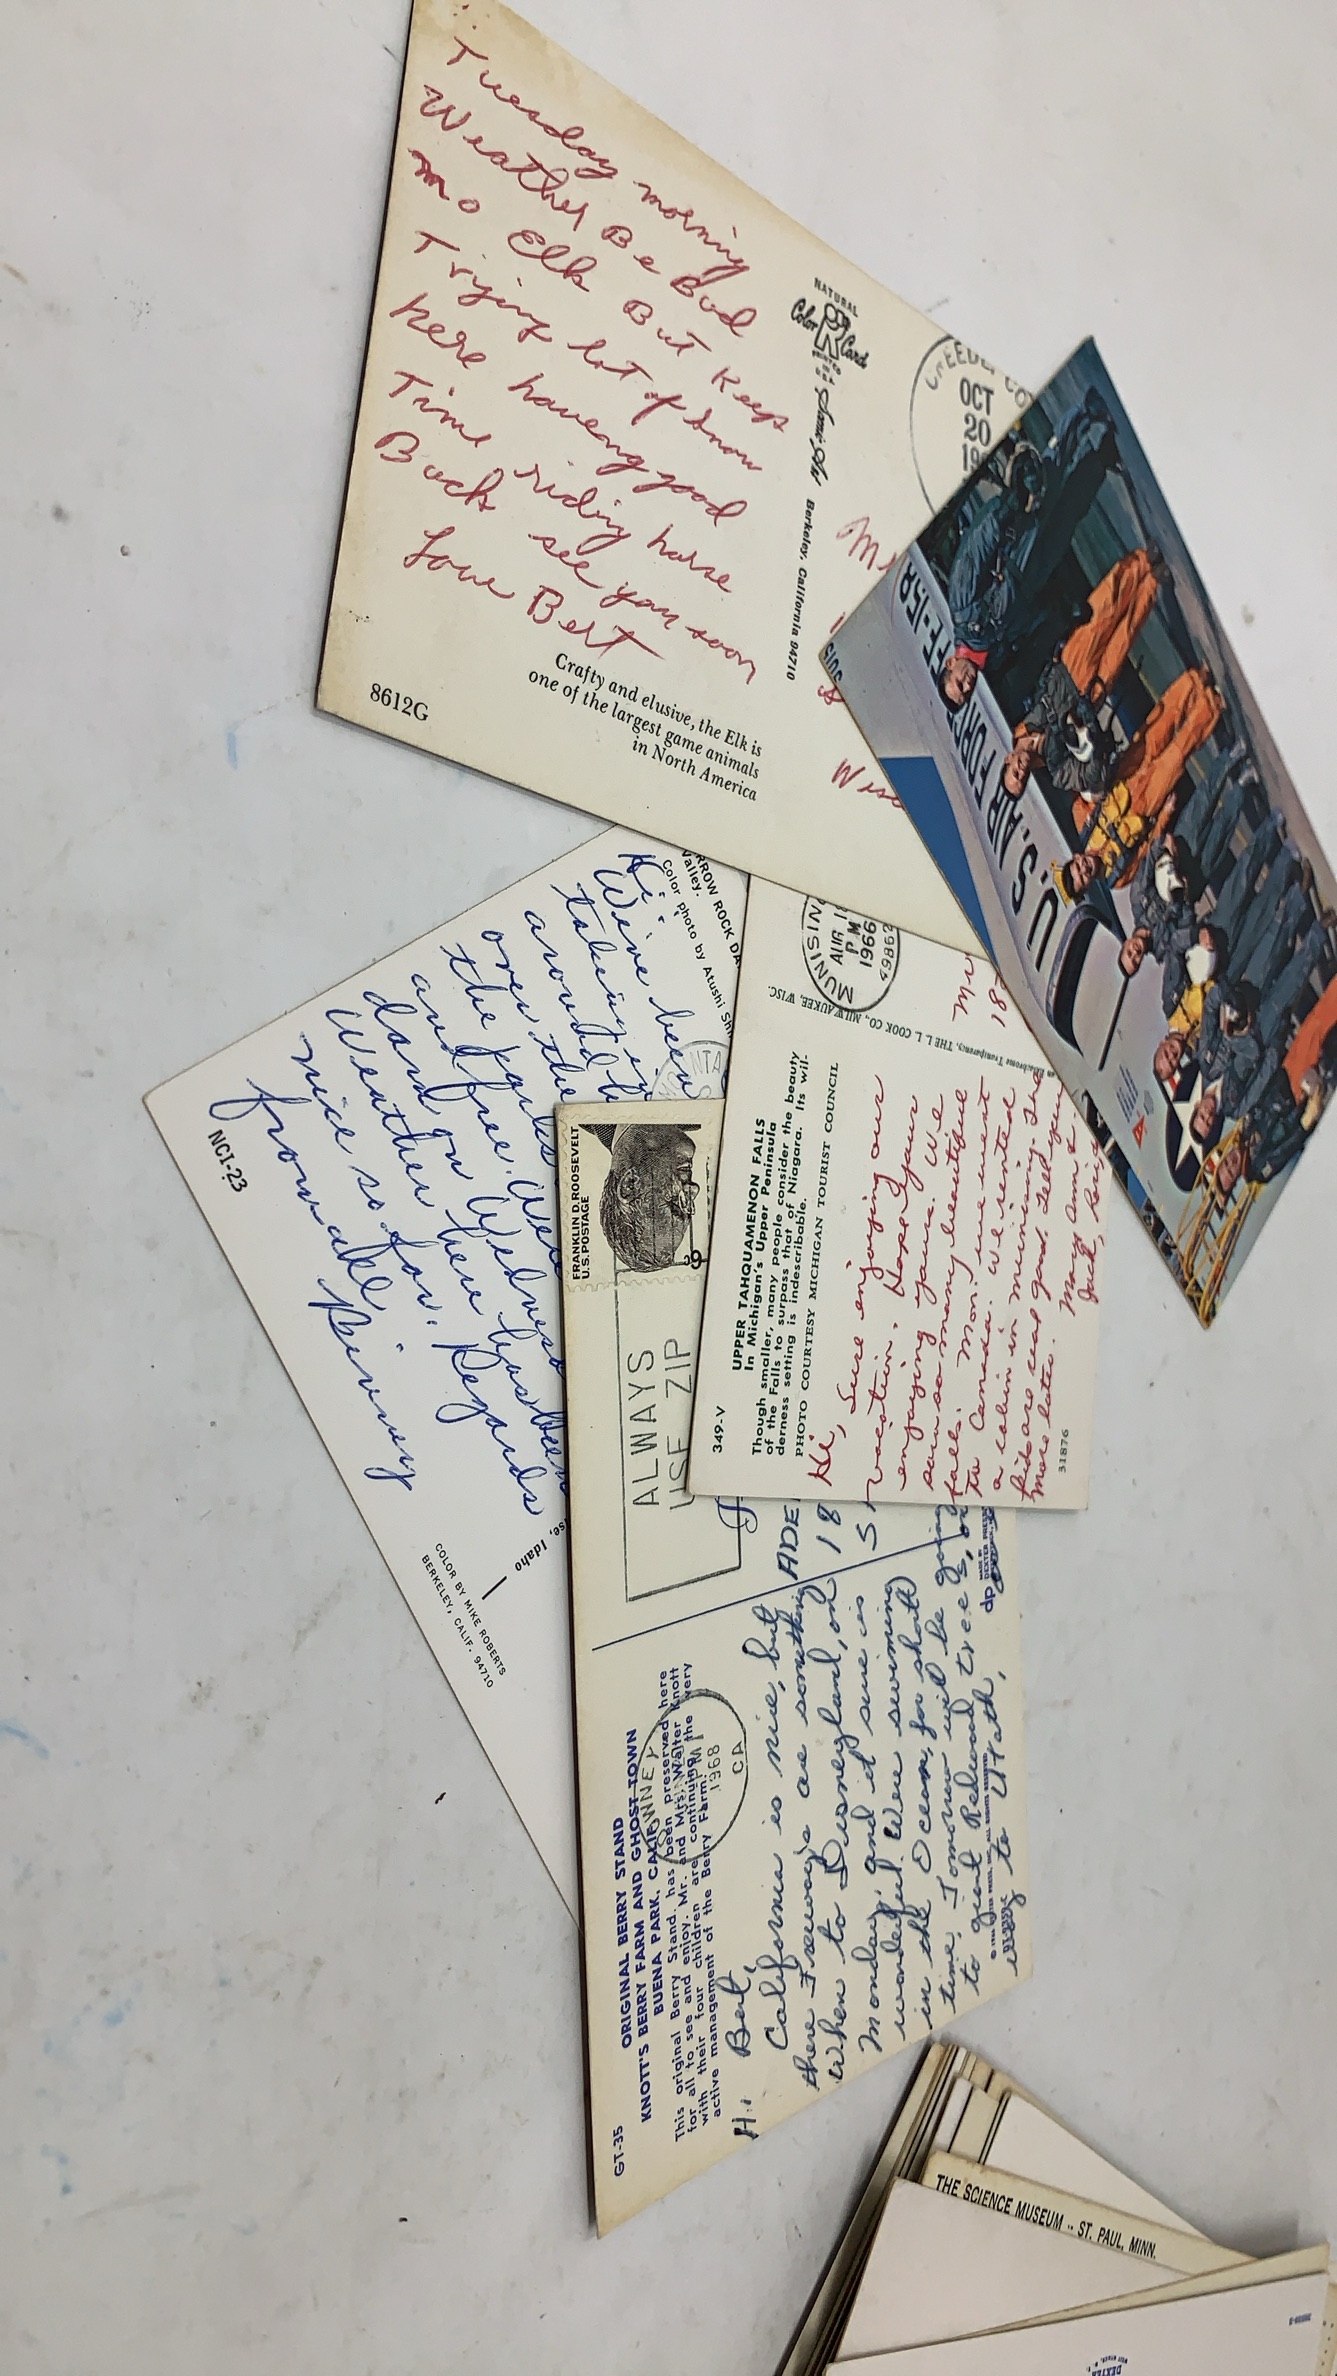 Tuesday morning
Weather Be Bad
no Elk But Keep
Trying lot of snow
here haveing good
Time riding horse
Back see you soon
Love Bert
Crafty and elusive, the Elk is
one of the largest game animals
in North America
8612G
NATURAL
Color R Card
Berkeley, California 94710
OCT
20
19
Wisc
U.S. AIR FORCE
FE-158
ARROW ROCK DA
Valley.
Color photo by Atushi Shi
Hi:
We've been
taking it
around
over the
the parks
and free. Were
dand on Wednesd
Weather here has been
nice so far. Regards
from all
NC1-23
se, Idaho
COLOR BY MIKE ROBERTS
BERKELEY, CALIF. 94710
MUNISIN
AUG 1
PM
1966
49862
349-V
UPPER TAHQUAMENON FALLS
In Michigan's Upper Peninsula
Though smaller, many people consider the beauty
of the Falls to surpass that of Niagara. Its wil-
derness setting is indescribable.
PHOTO COURTESY MICHIGAN TOURIST COUNCIL
Ektachrome Transparency, THE L. L. COOK CO., MILWAUKEE, WISC.
Hi, Sure enjoying our
vacation. Hope your
enjoying yours. We
saw so many beautiful
falls. Mon. we went
to Canada. We rented
a cabin in munising. The
kids are real good. Tell you
more later.
Mary Ann &
Jack,
31876
FRANKLIN D. ROOSEVELT
U.S. POSTAGE
6¢
ALWAYS
USE ZIP
GT-35
ORIGINAL BERRY STAND
KNOTT'S BERRY FARM AND GHOST TOWN
BUENA PARK, CALIF.
This original Berry Stand, has been preserved here
for all to see and enjoy. Mr. and Mrs. Walter Knott
with their four children are continuing the very
active management of the Berry Farm.
DOWNEY
PM
1968
CA
Hi Bert,
California is nice, but
there Freeway's are something
When to Disneyland, on
Monday, and it sure is
wonderful. Were swiming
in the Ocean, for short
time. Tomorrow will be going
to giant Redwood trees, on
way to Utah,
ADE
18
S
dp
MADE BY
DEXTER PRESS
THE SCIENCE MUSEUM -- ST. PAUL, MINN.
DEXTER